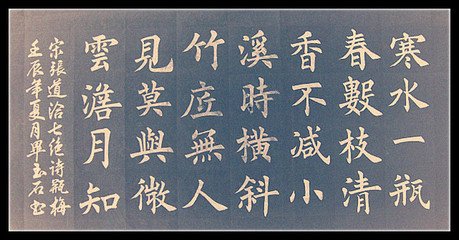 寒水一瓶
春數枝清
香不減小
溪時橫斜
竹底無人
見莫與微
雲澹月知
宋張道洽七绝诗瓶梅
壬辰年夏月畢玉石书